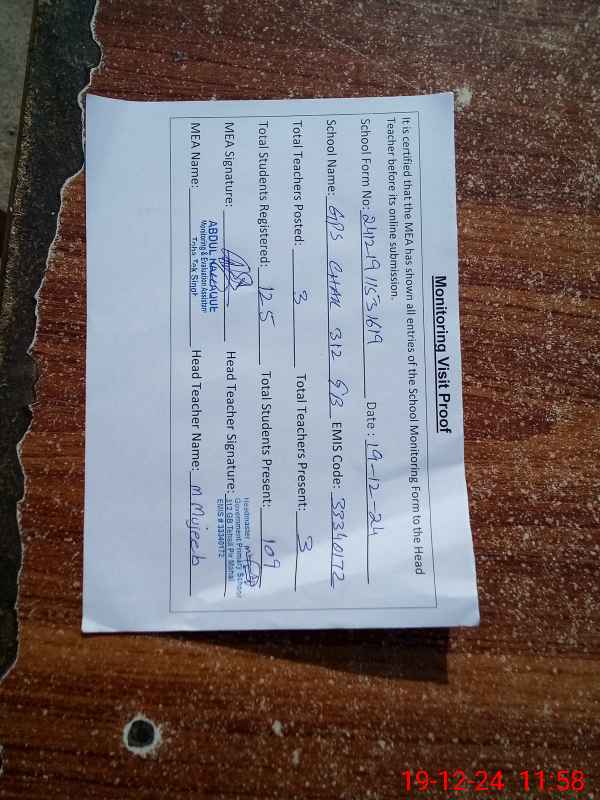 Monitoring Visit Proof
It is certified that the MEA has shown all entries of the School Monitoring Form to the Head
Teacher before its online submission.
School Form No: 24121911531619 Date : 19-12-24
School Name: GPS CHAK 312 GB EMIS Code: 33340172
Total Teachers Posted: 3 Total Teachers Present: 3
Total Students Registered: 125 Total Students Present: 109
MEA Signature: Head Teacher Signature:
Headmaster
Government Primary School
312 GB Tehsil Pir Mahal
EMIS # 33340172
ABDUL RAZZAQUE
Monitoring & Evaluation Assistant
Toba Tek Singh
MEA Name: Head Teacher Name: M Mujeeb
19-12-24 11:58